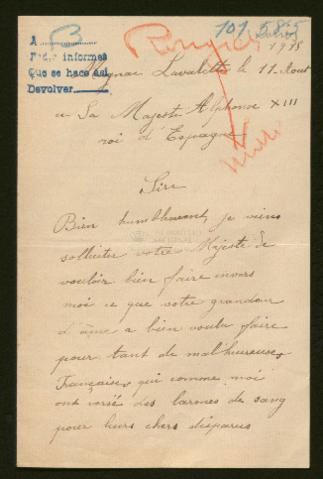 A B 101,585
Pedir informes
Que se hace así
Devolver
Rougier
Lavalette le 11 Aout
a Sa Majeste Alphonse XIII
roi d'Espagne
Sire
Bien humblement, je viens
solliciter votre Majesté de
vouloir bien faire envers
moi ce que votre grandeur
d'âme a bien voulu faire
pour tant de malheureuses
Françaises, qui comme moi
ont versé des larmes de sang
pour leurs chers disparus